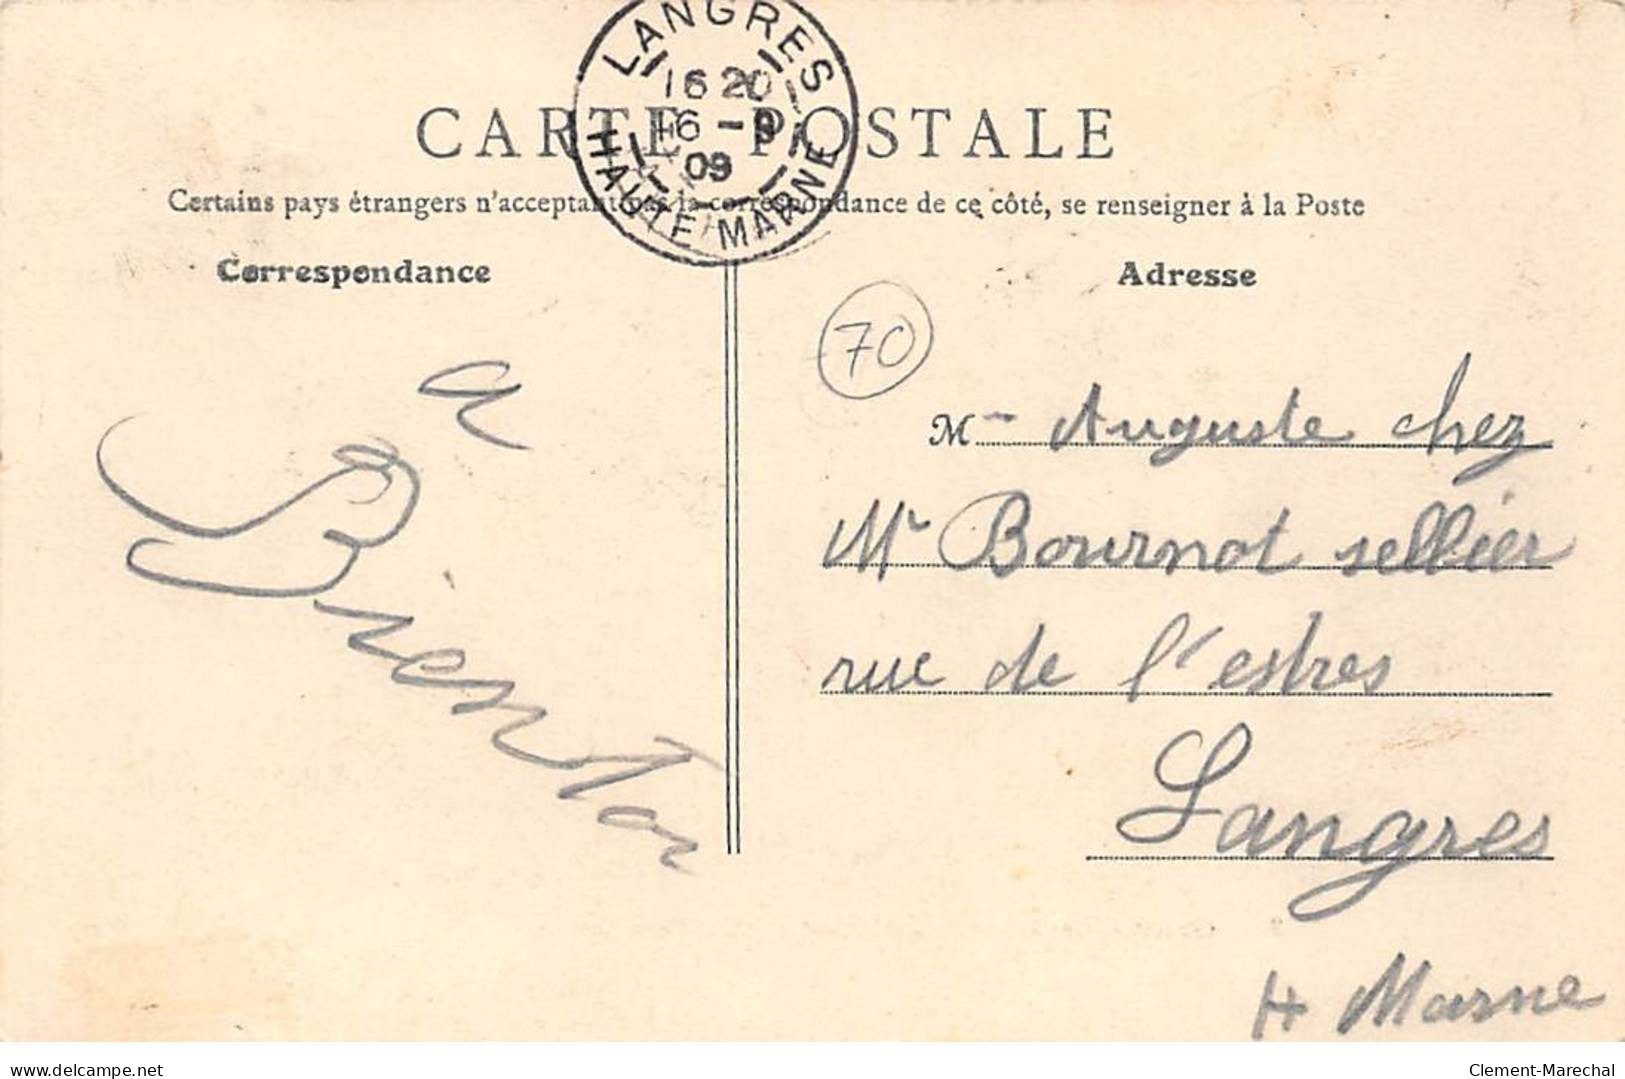 LANGRES
16 20
16 - 9
09
HAUTE MARNE
CARTE POSTALE
Certains pays étrangers n'acceptant pas la correspondance de ce côté, se renseigner à la Poste
Correspondance
a
Bientot
Adresse
70
M Auguste chez
Mr Bournot sellier
rue de l'estres
Langres
H Marne
delcampe.net
Clement-Marechal